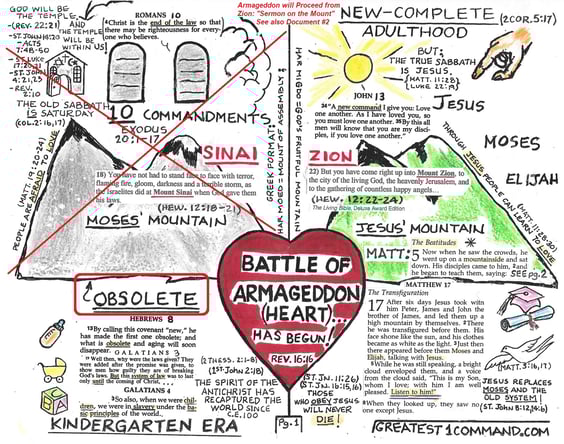 GOD WILL BE
THE TEMPLE,
-(REV. 22:21) AND
-ST. JOHN 16:20 THE TEMPLE
-ACTS WILL BE
7:48-50 WITHIN US
-ST. LUKE
17:20,21
-ST. JOHN
4:21,23
-REV.
2:10
THE OLD SABBATH
IS SATURDAY
(COL. 2:16,17)
ROMANS 10
4Christ is the end of the law so that
there may be righteousness for every-
one who believes.
10 COMMANDMENTS
EXODUS
20:1-17
SINAI
18) You have not had to stand face to face with terror,
flaming fire, gloom, darkness and a terrible storm, as
the Israelites did at Mount Sinai when God gave them
his laws.
(HEW. 12:18-21)
MOSES' MOUNTAIN
PEOPLE ARE AFRAID TO LOVE
(MATT. 19:20-24)
OBSOLETE
HEBREWS 8
13By calling this covenant "new," he
has made the first one obsolete; and
what is obsolete and aging will soon
disappear.
GALATIANS 3
19 Well then, why were the laws given? They
were added after the promise was given, to
show men how guilty they are of breaking
God's laws. But this system of law was to last
only until the coming of Christ,
GALATIANS 4
3So also, when we were chil-
dren, we were in slavery under the ba-
sic principles of the world.
KINDERGARTEN ERA
Armageddon will Proceed from
Zion: "Sermon on the Mount"
See also Document #2
GREEK FORMAT:
HAR MOED = MOUNT OF ASSEMBLY
HAR MIGED = GOD'S FRUITFUL MOUNTAIN
BATTLE OF
ARMAGEDDON
(HEART)...
HAS BEGUN!
REV. 16:16
(2 THESS. 2:1-8)
(1ST JOHN 2:18)
THE SPIRIT OF THE
ANTICHRIST HAS
RECAPTURED THE
WORLD SINCE
CE,100
Pg. 1
(ST. JN. 11:26)
(ST. JN. 10:15,16)
THOSE
WHO OBEY JESUS
WILL NEVER
DIE!
NEW-COMPLETE (2COR. 5:17)
ADULTHOOD
BUT;
THE TRUE SABBATH
IS JESUS.
(MATT. 11:28)
(LUKE 22:19)
JESUS
MOSES
ELIJAH
JOHN 13
34"A new command I give you: Love
one another. As I have loved you, so
you must love one another. 35By this all
men will know that you are my disci-
ples, if you love one another."
ZION
22) But you have come right up into Mount Zion, to
the city of the living God, the heavenly Jerusalem, and
to the gathering of countless happy angels...
(HEW. 12:22-24)
The Living Bible, Deluxe Award Edition
THROUGH JESUS PEOPLE CAN LEARN TO LOVE
(MATT. 11:28-30)
JESUS' MOUNTAIN
The Beatitudes
MATT: 5 Now when he saw the crowds, he
went up on a mountainside and sat
down. His disciples came to him, 2and he
began to teach them, saying SEE pg. 2
MATTHEW 17
The Transfiguration
17 After six days Jesus took with
him Peter, James and John the
brother of James, and led them up a
high mountain by themselves. 2There
he was transfigured before them. His
face shone like the sun, and his clothes
became as white as the light. 3Just then
there appeared before them Moses and
Elijah, talking with Jesus.
5While he was still speaking, a bright
cloud enveloped them, and a voice
from the cloud said, "This is my Son,
whom I love; with him I am well
pleased. Listen to him!"
8When they looked up, they saw no
one except Jesus.
(MATT. 3:16,17)
JESUS REPLACES
MOSES AND THE
OLD SYSTEM!
(ST. JOHN 8:12,14:6)
GREATEST1COMMAND.COM